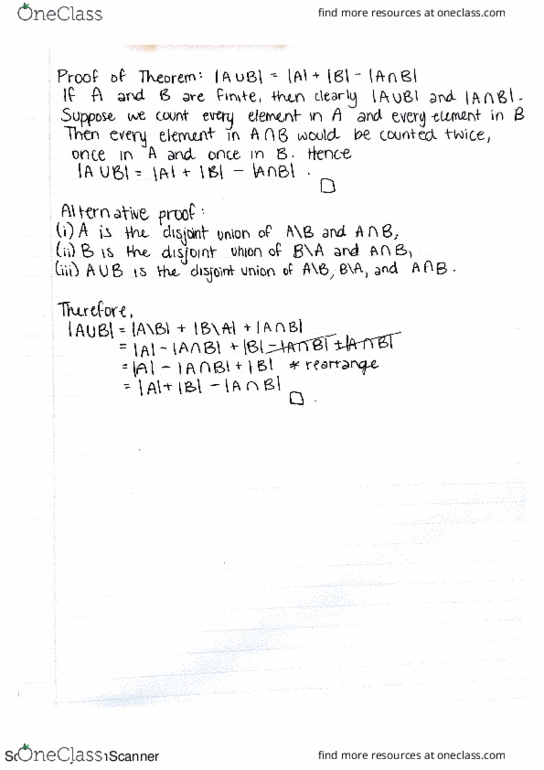 OneClass find more resources at oneclass.com
Proof of Theorem: |A∪B| = |A| + |B| - |A∩B|
If A and B are finite, then clearly |A∪B| and |A∩B|.
Suppose we count every element in A and every element in B
Then every element in A∩B would be counted twice,
once in A and once in B. Hence
|A∪B| = |A| + |B| - |A∩B|.
□
Alternative proof:
(i) A is the disjoint union of A\B and A∩B,
(ii) B is the disjoint union of B\A and A∩B,
(iii) A∪B is the disjoint union of A\B, B\A, and A∩B.
Therefore,
|A∪B| = |A\B| + |B\A| + |A∩B|
= |A| - |A∩B| + |B| - |A∩B| + |A∩B|
= |A| - |A∩B| + |B| * rearrange
= |A| + |B| - |A∩B|
□.
OneClass Scanner find more resources at oneclass.com